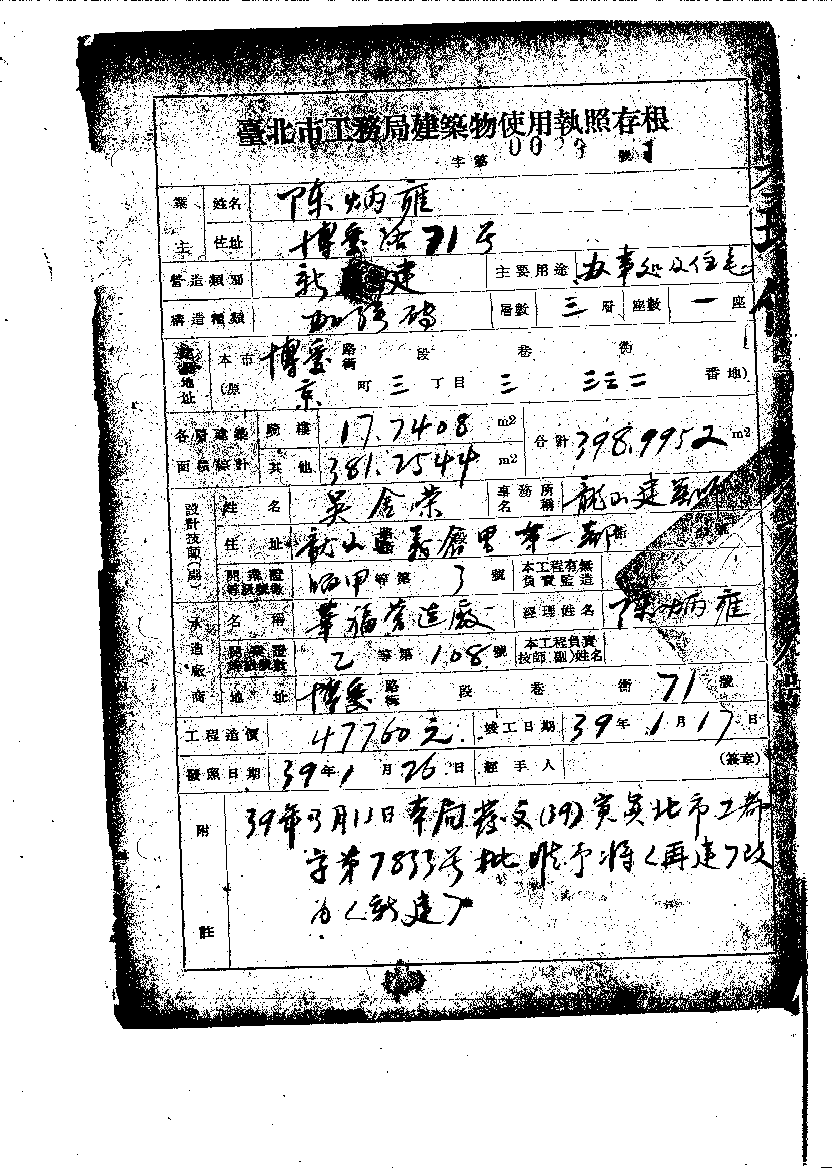 臺北市工務局建築物使用執照存根
字第 003 號
業主 姓名 陳炳雍
住址 博愛路71号
營造類別 新建 主要用途 办事处及住宅
構造種類 加強磚 層數 三層 座數 一座
建築地址 本市 博愛 路街 段 巷 衖
(原 京 町 三 丁目 三 三三二 番地)
各層建築面積総計 騎樓 17.7408 m2 合計 398.9952 m2
其他 381.2544 m2
設計技師(副) 姓名 吳金榮 事務所名稱 龍山建築師
住址 龍山區 里 第一 衖
開業證等級號數 甲等第 3 號 本工程有無負責監造
承造廠商 名稱 華福營造廠 經理姓名 陳炳雍
開業證等級號數 乙等第 108 號 本工程負責技師(副)姓名
地址 博愛 路街 段 巷 衖 71 號
工程造價 47760元 竣工日期 39年1月17日
發照日期 39年1月26日 經手人 (簽章)
附註 39年3月 日本局發文(39) 北市工都
字第7833号批 准予將〈再建〉改
为〈新建〉